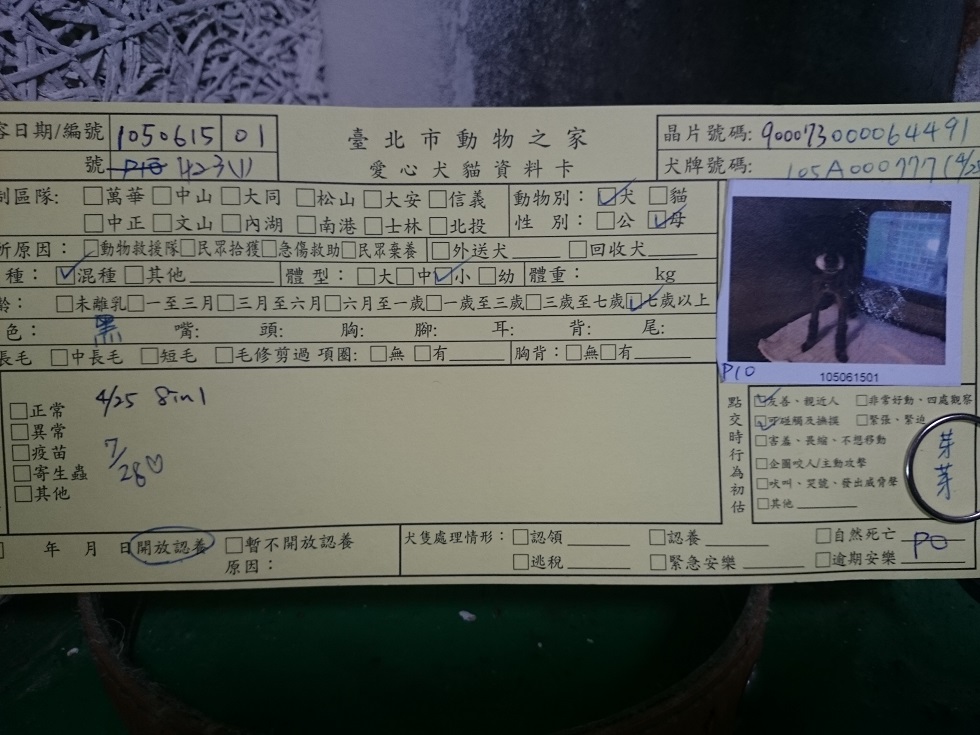 容日期/編號 1050615 01
臺北市動物之家
晶片號碼: 900073000064491
號 P10 423(1)
愛心犬貓資料卡
犬牌號碼: 105A000777 (4/25
制區隊: □萬華□中山□大同 □松山□大安□信義
□中正□文山□內湖 □南港□士林□北投
動物別: ☑犬 □貓
性 別: □公 ☑母
所原因: □動物救援隊□民眾拾獲□急傷救助□民眾棄養 □外送犬 □回收犬
種: ☑混種 □其他 體 型: □大□中☑小 □幼 體重: kg
齡: □未離乳□一至三月□三月至六月□六月至一歲□一歲至三歲□三歲至七歲☑七歲以上
色: 黑 嘴: 頭: 胸: 腳: 耳: 背: 尾:
長毛 □中長毛 □短毛 □毛修剪過 項圈: □無 □有 胸背: □無□有
P10
105061501
□正常
□異常
□疫苗
□寄生蟲
□其他
4/25 8in1
7/28♡
點交時行為初估
☑友善、親近人 □非常好動、四處觀察
☑可碰觸及撫摸 □緊張、緊迫
□害羞、畏縮、不想移動
□企圖咬人/主動攻擊
□吠叫、哭號、發出威脅聲
□其他
芽芽
年 月 日開放認養 □暫不開放認養
原因:
犬隻處理情形: □認領 □認養 □自然死亡
□逃脫 □緊急安樂 □逾期安樂
PO